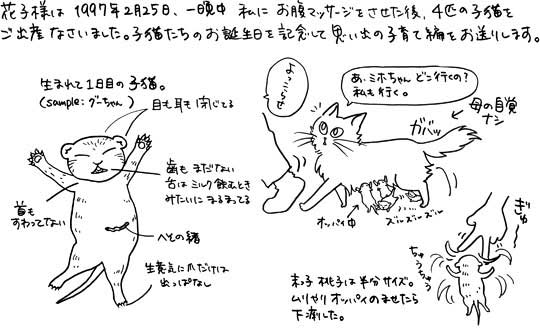 花子様は1997年2月25日、一晩中 私に お腹マッサージをさせた後、4匹の子猫を
ご出産なさいました。子猫たちのお誕生日を記念して思い出の子育て編をお送りします。
生まれて1日目の子猫。
(sample:グーちゃん)
目も耳も閉じてる
歯も まだない
舌はミルク飲むとき
みたいに まるまってる
首も
すわってない
へその緒
生意気に爪だけは
出っぱなし
よっこらせ
あ、ミホちゃん どこ行くの?
私も行く。
ガバッ
母の自覚
ナシ
オッパイ中
ズルズルズル
ぎゅ
ちゅうちゅう
末っ子 桃子は半分サイズ。
ムリヤリ オッパイのませたら
下痢した。